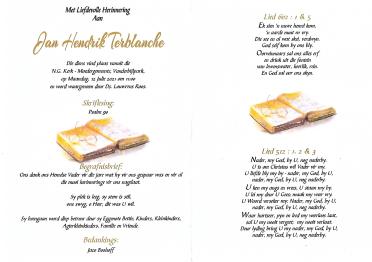 Met Liefdevolle Herinnering
Aan
Jan Hendrik Terblanche
Die diens vind plaas vanuit die
N.G. Kerk - Miedergemeente, Vanderbijlpark,
op Maandag, 12 Julie 2021 om 11:00
en word waargeneem deur Ds. Lourens Roos.
Skriflesing:
Psalm 90
Begrafnisbrief:
Ons dank ons Hemelse Vader vir die jare wat hy vir ons gespaar was en vir al
die mooi herinneringe vir ons nagelaat.
Sy plek is leeg, sy stem is stil,
ons swyg, o Heer, dit was U wil.
Sy heengaan word diep betreur deur sy Eggenote Bettie, Kinders, Kleinkinders,
Agterkleinkinders, Familie en Vriende.
Bedankings:
Joce Boshoff
Lied 602 : 1 & 5
Ek sien 'n nuwe hemel kom,
'n aarde nuut en vry.
Die see en al wat skei, verdwyn.
God self kom by ons bly.
Oorwinnaars sal ons alles erf
en drink uit die fontein
van lewenswater, heerlik, rein.
En God sal oor ons skyn.
Lied 512 : 1, 2 & 3
Nader, my God, by U, nog naderby.
U is wat Christus wil Vader vir my.
U liefde bly my by - nader, my God, by U,
nader, my God, by U, nog naderby.
U ken my vrees en wens, U steun my by.
U lei my deur U Gees; maak my voor vry.
U Woord verseker my: Nader, my God, by U,
nader, my God, by U, nog naderby.
Waar hartseer, pyn en leed my voorland laat,
sal U my smart versag, my nooit verlaat.
Deur lyding bring U my nader, my God, by U,
nader, my God, by U, nog naderby.